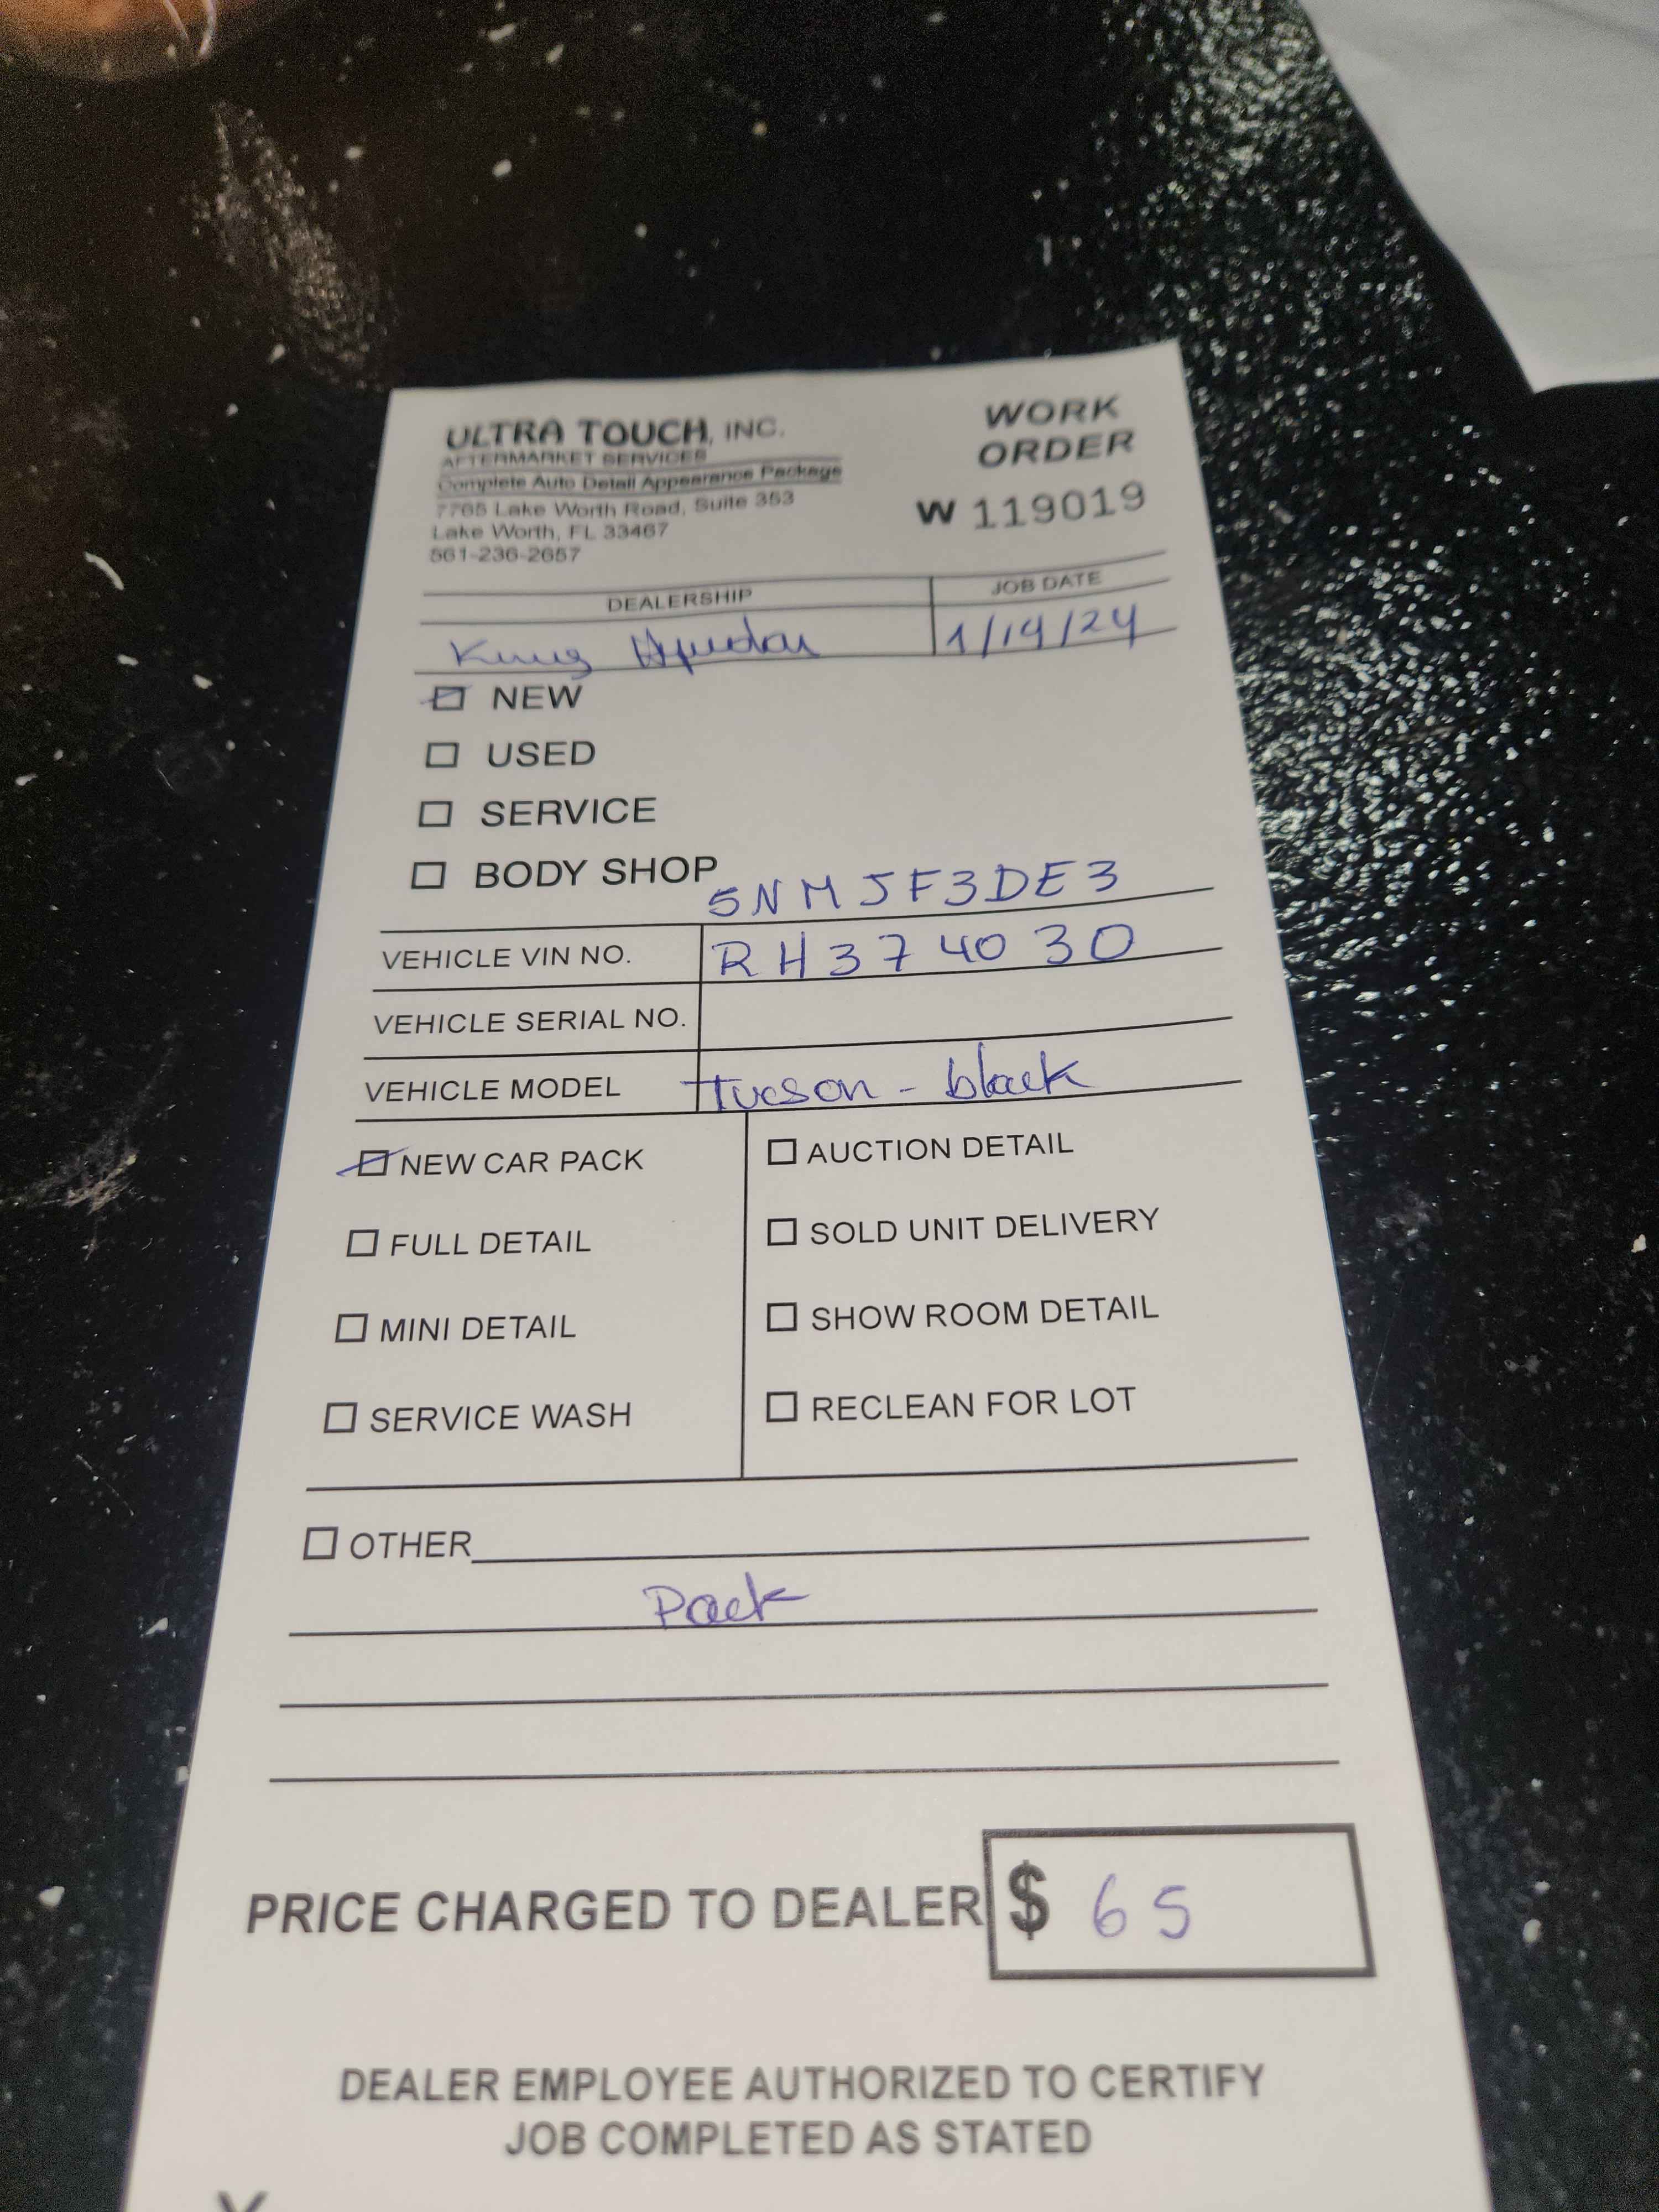 ULTRA TOUCH, INC.
AFTERMARKET SERVICES
Complete Auto Detail Appearance Package
7765 Lake Worth Road, Suite 353
Lake Worth, FL 33467
561-236-2657
WORK
ORDER
W 119019
DEALERSHIP JOB DATE
King 1/19/24
NEW
USED
SERVICE
BODY SHOP
5NMJF3DE3
VEHICLE VIN NO. RH374030
VEHICLE SERIAL NO.
VEHICLE MODEL Tucson - black
NEW CAR PACK
FULL DETAIL
MINI DETAIL
SERVICE WASH
AUCTION DETAIL
SOLD UNIT DELIVERY
SHOW ROOM DETAIL
RECLEAN FOR LOT
OTHER
Pack
PRICE CHARGED TO DEALER $ 65
DEALER EMPLOYEE AUTHORIZED TO CERTIFY
JOB COMPLETED AS STATED
X